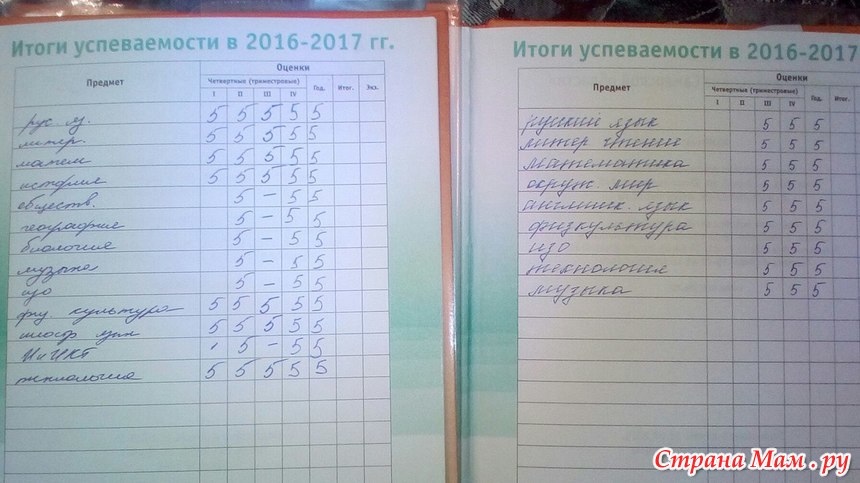 Итоги успеваемости в 2016-2017 гг.
Предмет Оценки
Четвертные (триместровые) Год. Итог. Экз.
I II III IV
рус. яз. 5 5 5 5 5
литер. 5 5 5 5 5
матем 5 5 5 5 5
история 5 5 5 5 5
обществ. 5 – 5 5
география 5 – 5 5
биология 5 – 5 5
музыка 5 – 5 5
изо 5 – 5 5
физ. культура 5 5 5 5 5
иностр язык 5 5 5 5 5
ИиИКТ 5 – 5 5
технология 5 5 5 5 5
Итоги успеваемости в 2016-2017
Предмет Оценки
Четвертные (триместровые) Год. Итог.
I II III IV
русский язык 5 5 5
литер чтение 5 5 5
математика 5 5 5
окруж. мир 5 5 5
английск. язык 5 5 5
физкультура 5 5 5
изо 5 5 5
технология 5 5 5
музыка 5 5 5
Страна Мам.ру